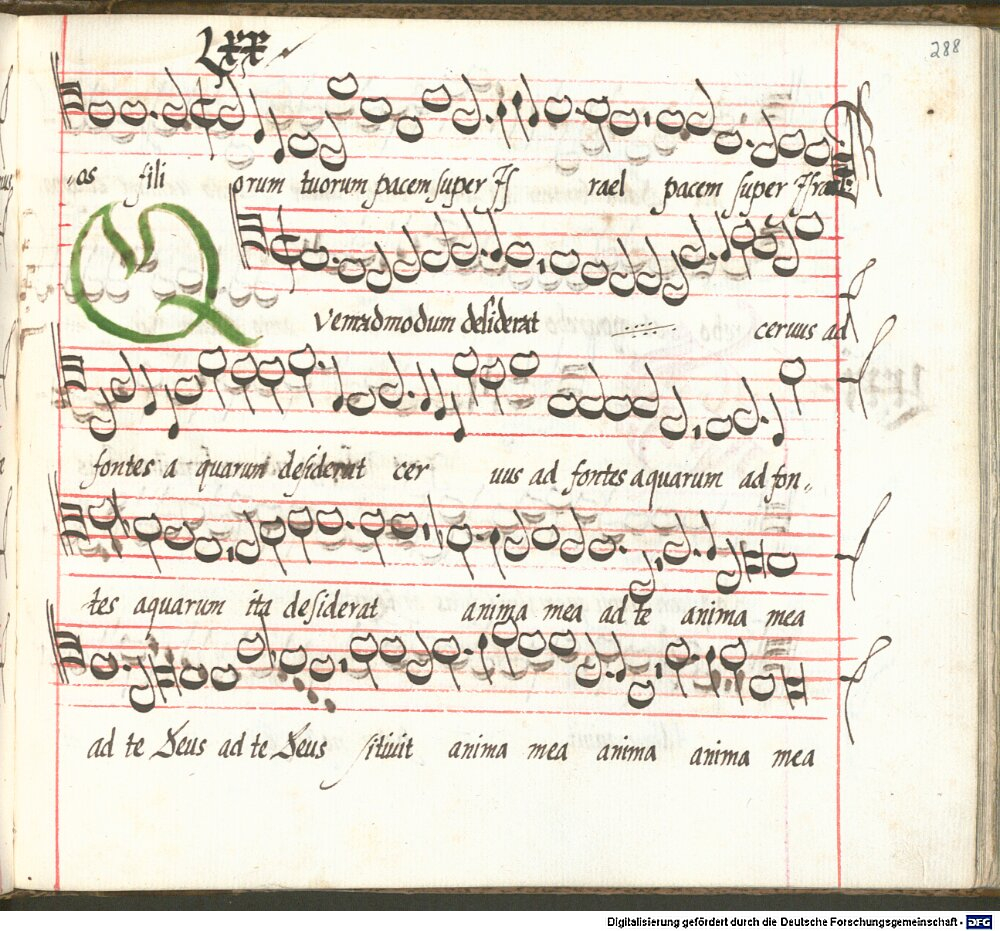 Lxx
288
os fili orum tuorum pacem super Is rael pacem super Israel
Quemadmodum desiderat ceruus ad
fontes a quarum desiderat cer uus ad fontes aquarum ad fon„
tes aquarum ita desiderat anima mea ad te anima mea
ad te Deus ad te Deus sitiuit anima mea anima anima mea
Digitalisierung gefördert durch die Deutsche Forschungsgemeinschaft - DFG